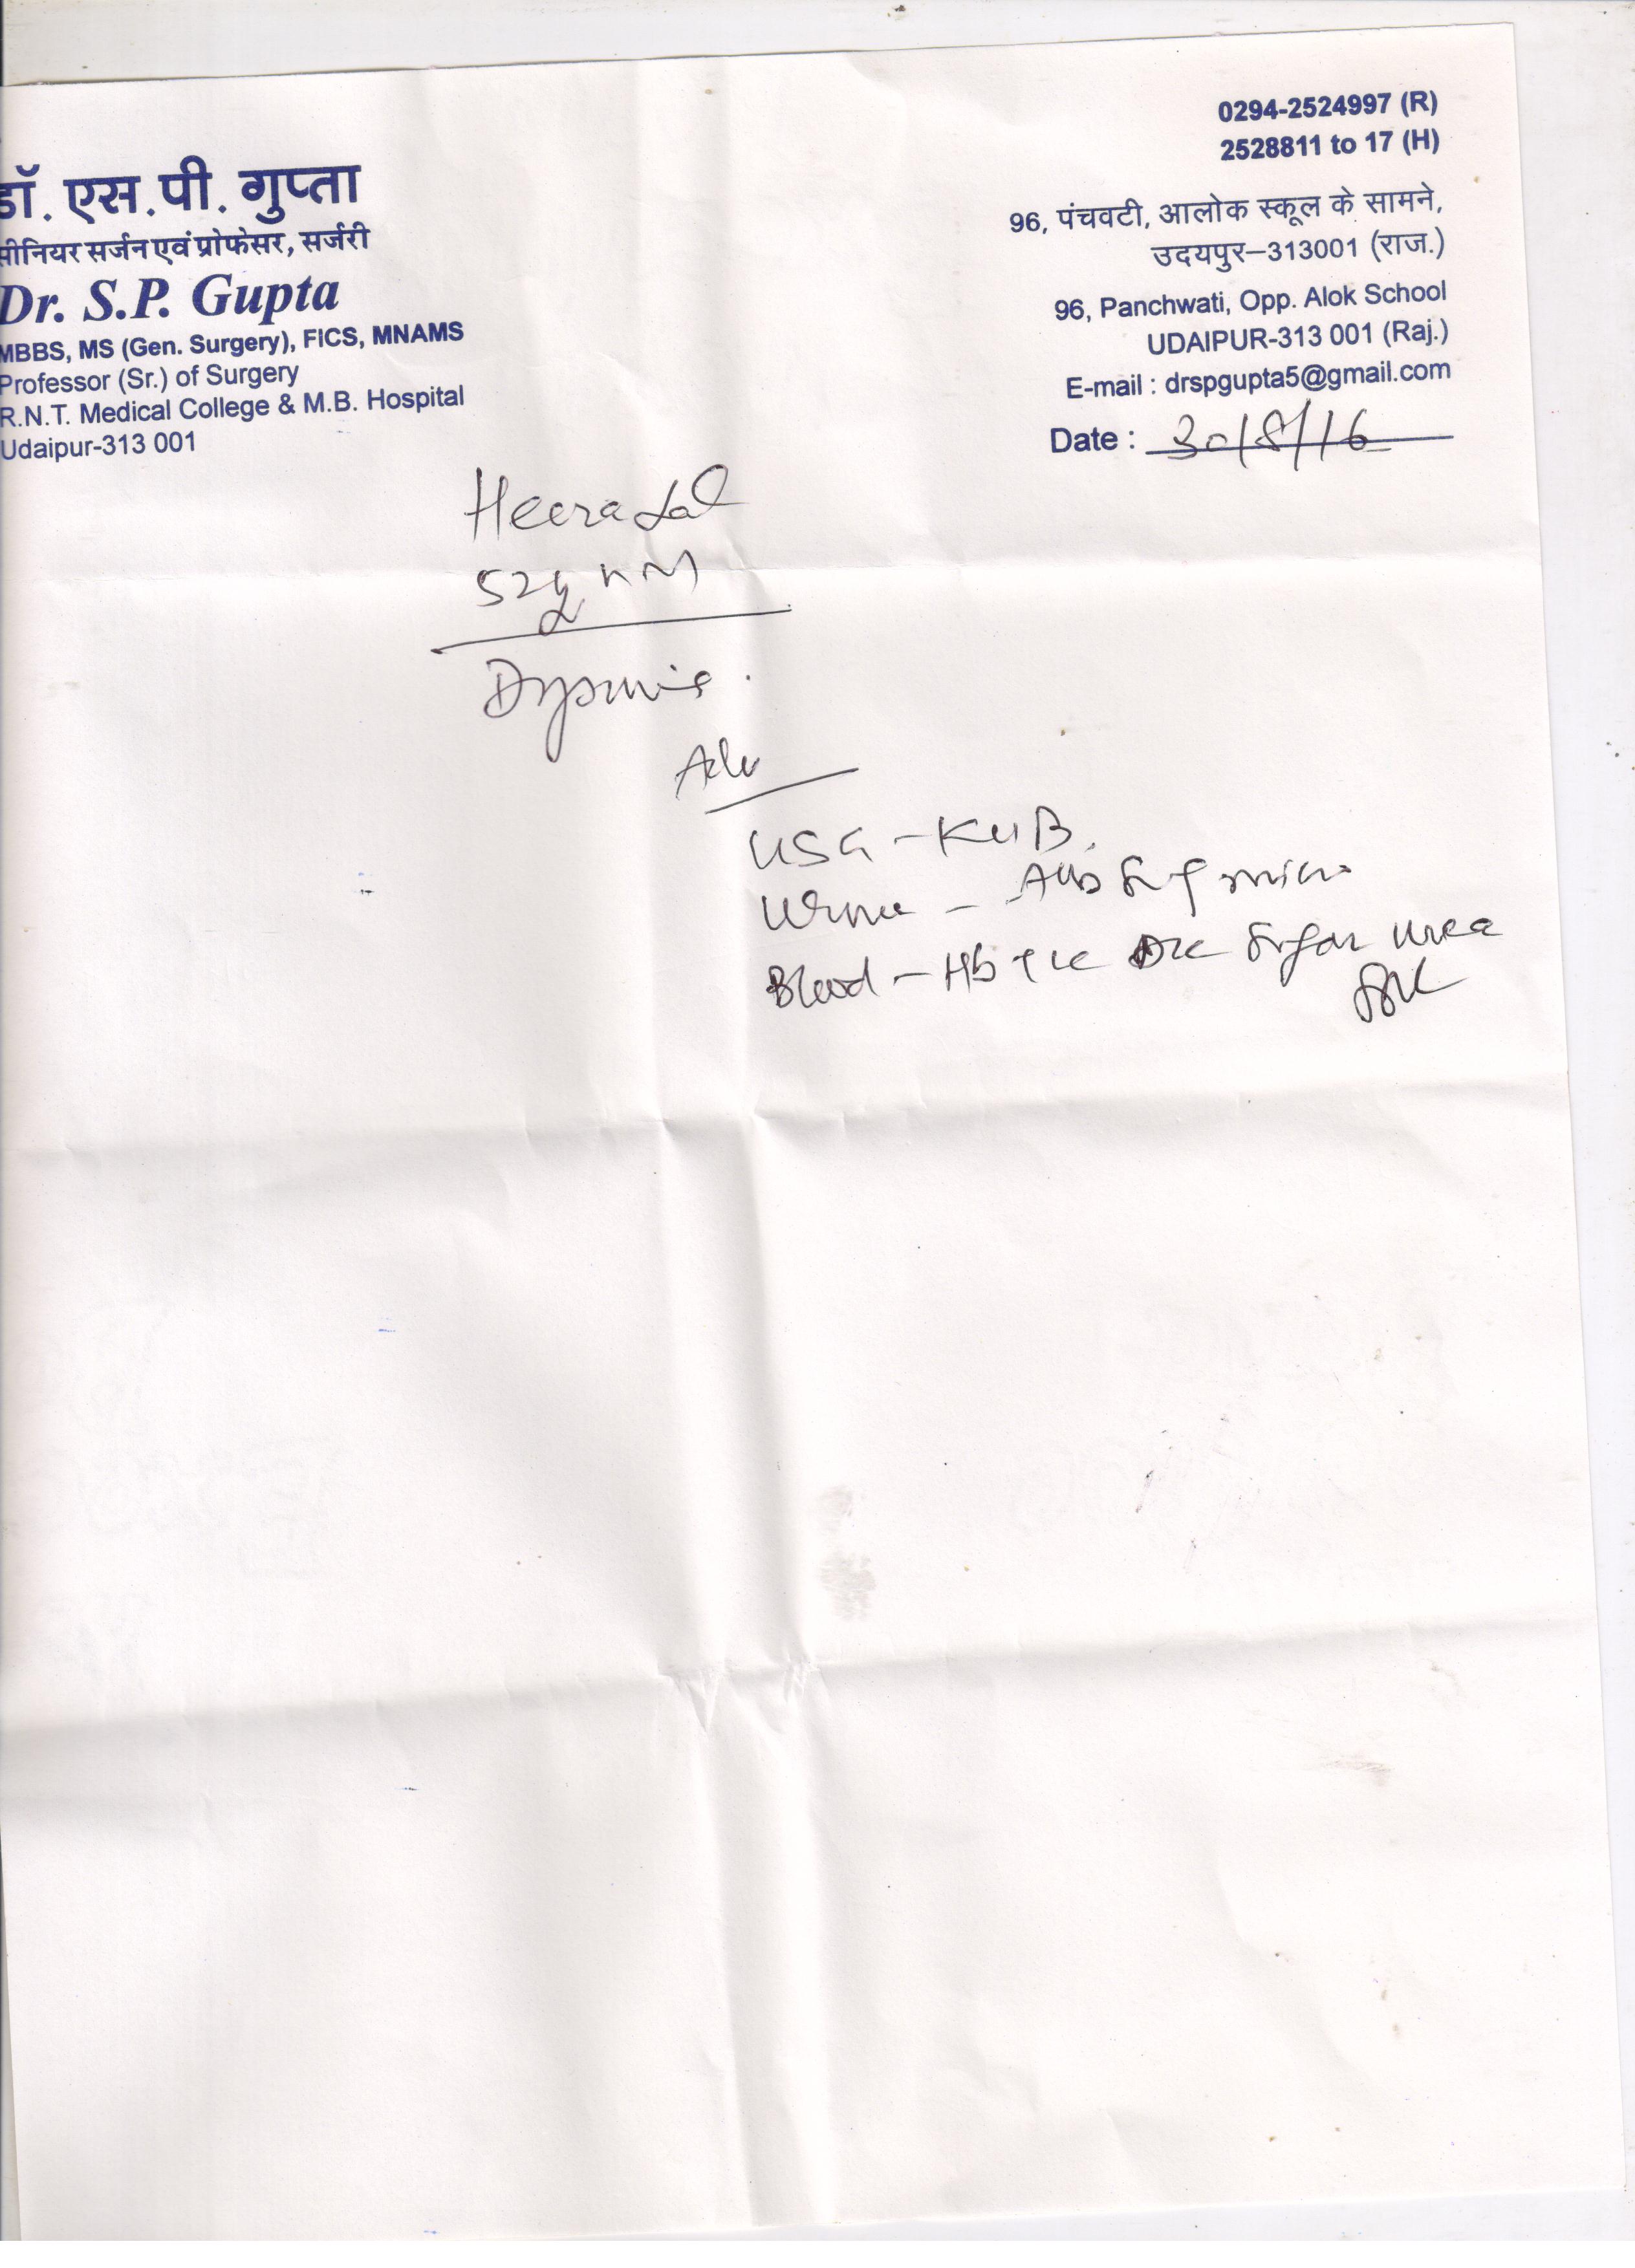 डॉ. एस.पी. गुप्ता
सीनियर सर्जन एवं प्रोफेसर, सर्जरी
Dr. S.P. Gupta
MBBS, MS (Gen. Surgery), FICS, MNAMS
Professor (Sr.) of Surgery
R.N.T. Medical College & M.B. Hospital
Udaipur-313 001
0294-2524997 (R)
2528811 to 17 (H)
96, पंचवटी, आलोक स्कूल के सामने,
उदयपुर–313001 (राज.)
96, Panchwati, Opp. Alok School
UDAIPUR-313 001 (Raj.)
E-mail : drspgupta5@gmail.com
Date : 30/8/16
Heera Lal
52y M
Adv
USG - KUB.
Urine - Alb Sug micro
Blood - Hb TLC DLC Sugar Urea